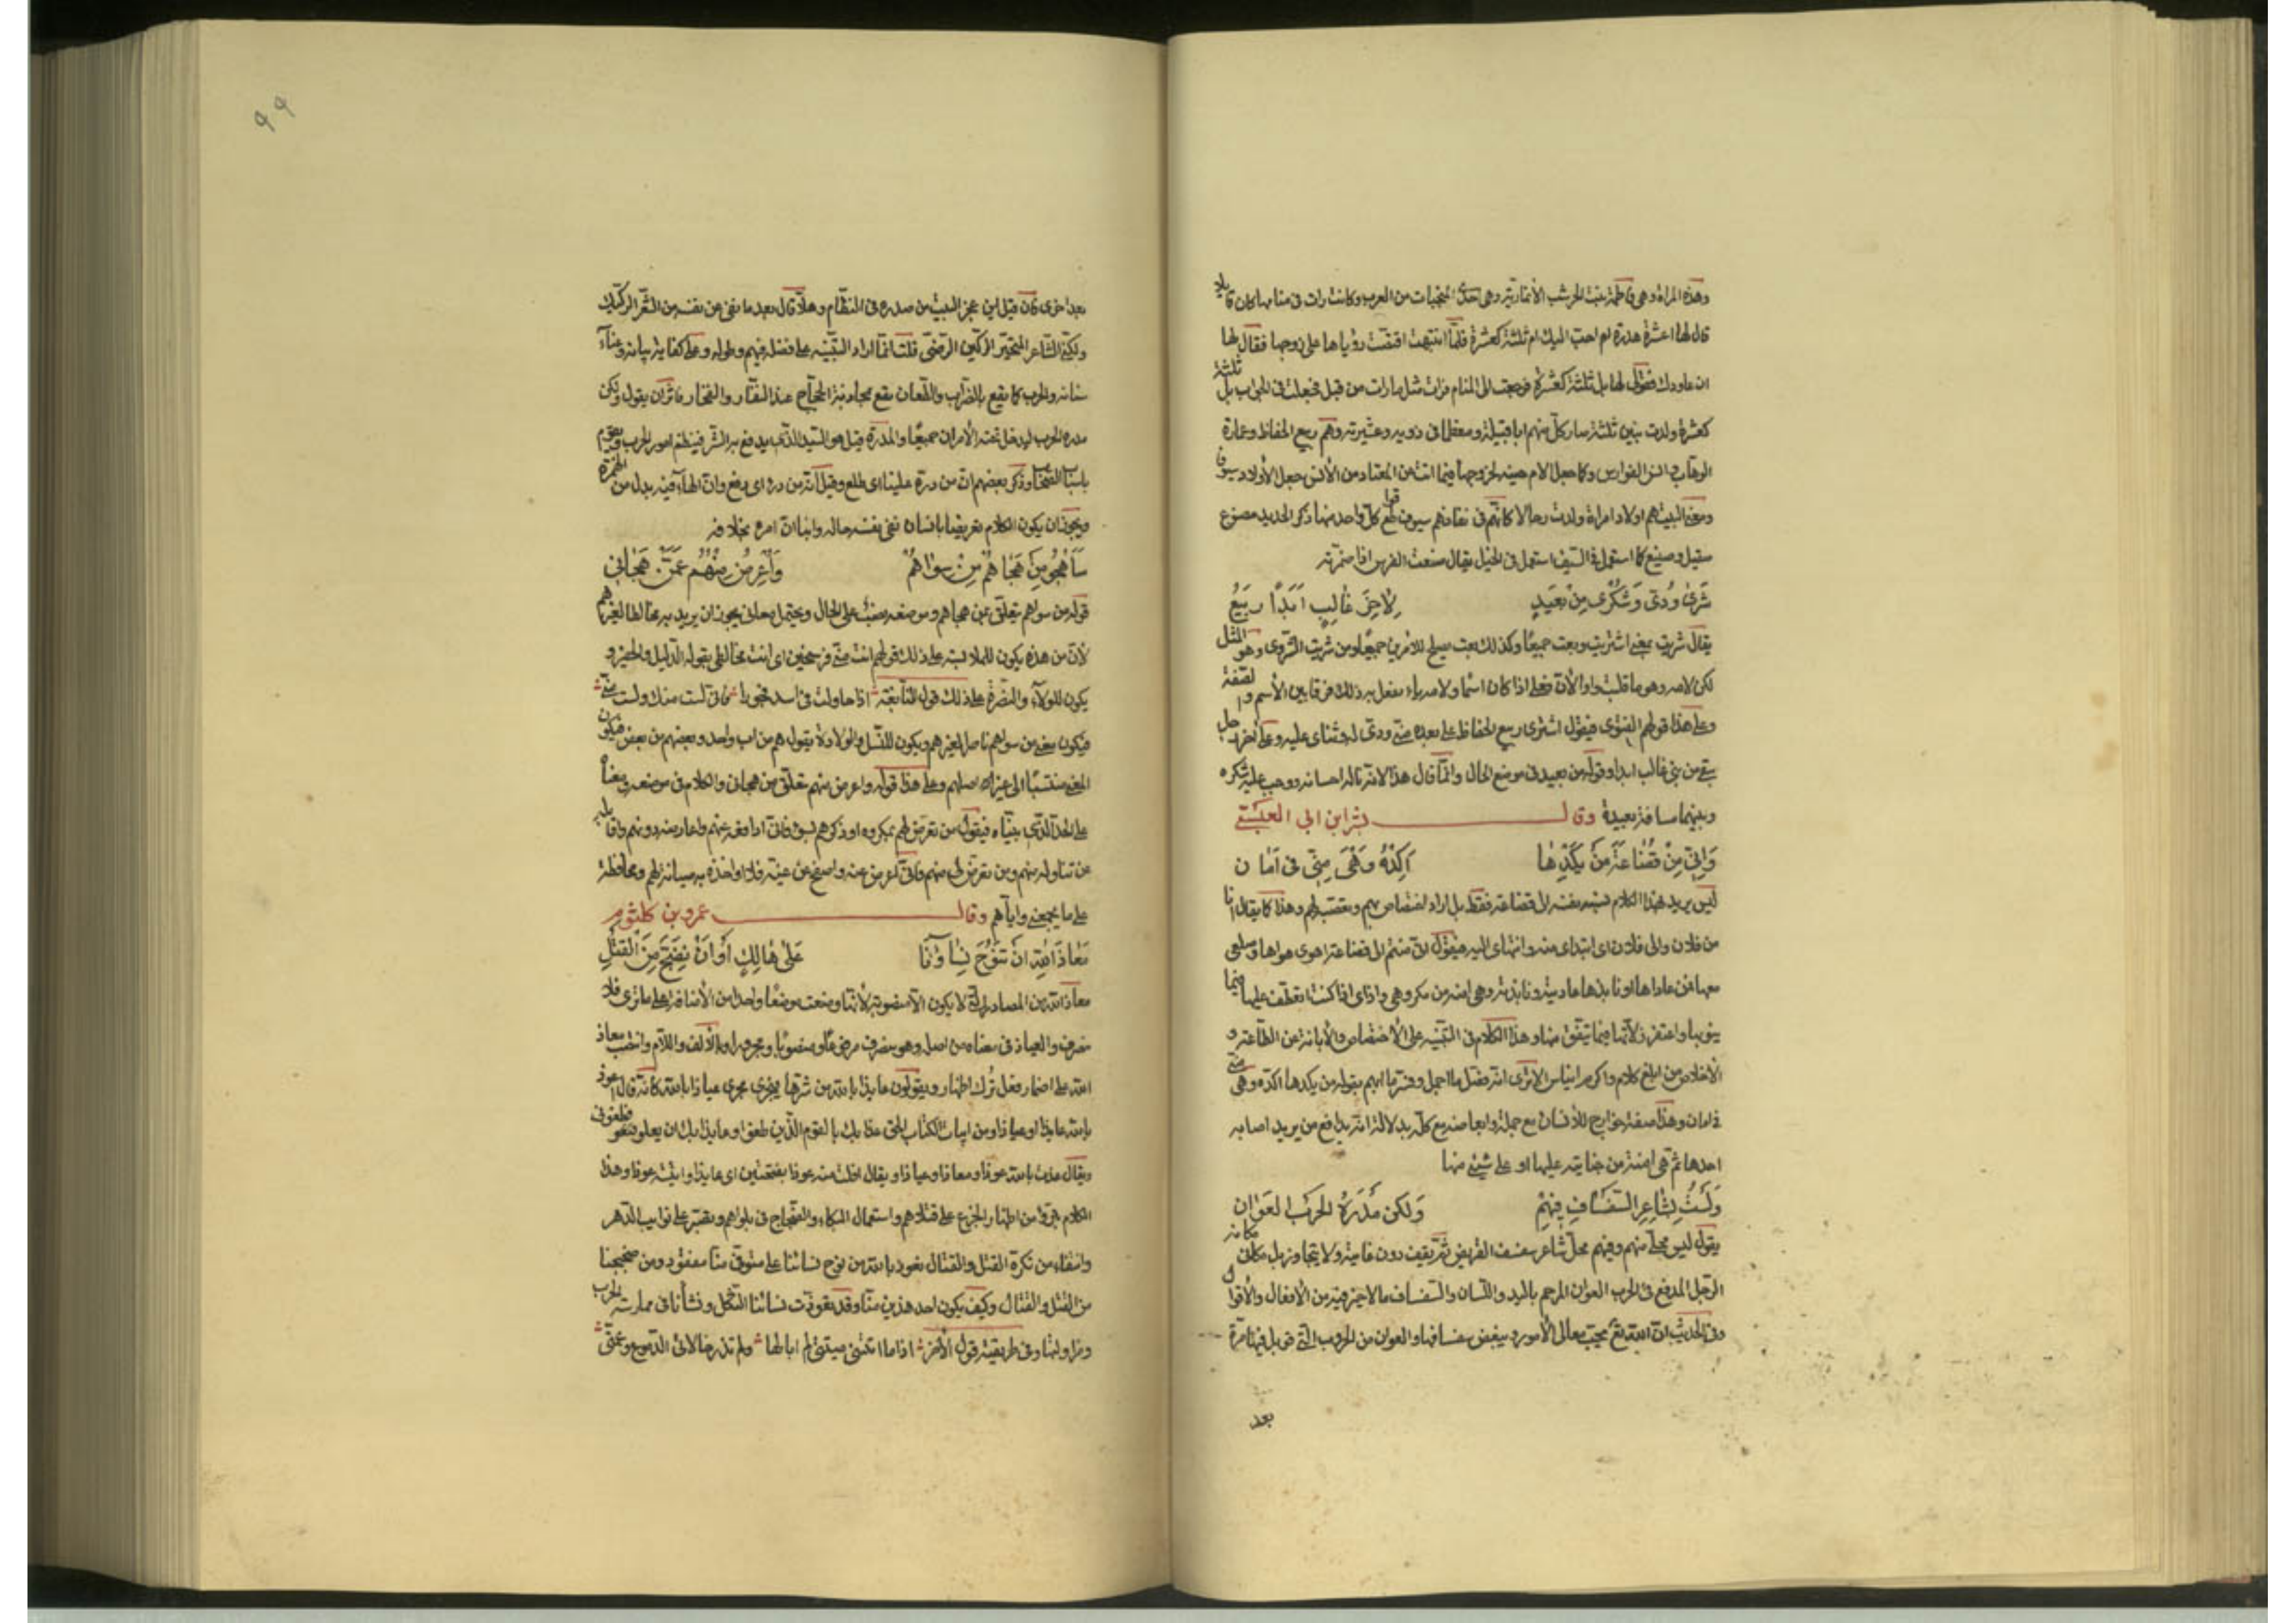 وهذه المراة وهى فاطمة بنت الخرشب الانمارية وهى احدى المنجبات من العرب وكانت رات فى منامها كان قايلا
قال لها اعشرة هدرة ام احب اليك ام ثلثة كعشرة فلما انتبهت اقتصت رؤياها على زوجها فقال لها
ان عاودك فقولى لها بل ثلثة كعشرة فرجعت الى المنام فرات مثل ما رات من قبل فجعلت فى الجواب بل ثلثة
كعشرة ولدت بنين ثلثة صار كل منهم ابا قبيلة ومعظما فى ذويه وعشيرته وهم ربيع الحفاظ وعمارة
الوهاب وانس الفوارس وكما جعل الام جنية لخروجها فيما اتت من المعتاد من الانس جعل الاولاد سيوفا
ومعنى البيت هم اولاد امراة ولدت رجالا كانهم فى نفاذهم سيوف قواطع كل واحد منها ذكر الحديد مصنوع
صقيل وصنيع كما استعمل فى السيف استعمل فى الخيل يقال صنعت الفرس اذا ضمرته
شَرى وُدّى وَشُكْرى مِنْ بَعيدٍ لِاخِرِ غالِبٍ اَبَداً رَبيعُ
يقال شريت بمعنى اشتريت وبعت جميعا وكذلك بعت يصلح للامرين جميعا ومن شريت الشروى وهو المثل
لكن لامه وهو ما قلبت واوا لان فعلى اذا كان اسما ولامه ياء يفعل به ذلك فرقا بين الاسم والصفة
وعلى هذا قولهم الفتوى فيقول اشترى ربيع الحفاظ على بعده منى ودى له وثناى عليه وعلى اخر رجل
بقى من بنى غالب ابدا وقوله من بعيد فى موضع الحال وانما قال هذا لانه ناله احسانه ووجب عليه شكره
وبينهما مسافة بعيدة وقال بشر ابن ابى العبسى
وَاِنّى مِنْ قُضاعَةَ مَنْ يَكِدْها اَكِدْهُ وَهْىَ مِنّى فى اَمان
ليس يريد بهذا الكلام نسبة نفسه الى قضاعة فقط بل اراد اختصاص بهم وتعصب لهم وهذا كما يقال انا
من فلان والى فلان اى ابتداى منه وانتهاى اليه فيقول انى منتم الى قضاعة اهوى هواها
معها فمن عاداها او نابذها عاديته ونابذته وهى امنة من مكروهى واذاى اذا كنت اتعطف عليها فيما
ينوبها واعتفر زلاتها فيما يتفق منها وهذا الكلام فى التنبيه على الاختصاص والابانة عن الطاعة و
الاخلاص من ابلغ كلام واكرم ايناس الا ترى انه فصل ما اجمل وفسر ما ابهم بقوله من يكدها اكده وهى منى
فى امان وهذا صفة جوارح الانسان مع جملته وابعاضه مع كله بدلالة انه يدافع من يريد اصابه
احدها ثم هى امنة من جنايته عليها او على شيىء منها
وَلَسْتُ بِشاعِرِ السَّفْسافِ فيهِمْ وَلكِن مِدْرَهُ الحَربِ العَوان
يقول ليس محلى منهم وفيهم محل شاعر سفسف القريض ثم يقف دون غايته ولا يتجاوز بل مكانى مكانه
الرجل المدفع فى الحرب العوان المرجم باليد واللسان والسفساف ما لا خير فيه من الافعال والاقوال
وفى الحديث ان الله تع يحب معالى الامور ويبغض سفسافها والعوان من الحروب التى قوتل فيها مرة
بعد
٩٩
بعد اخرى فان قيل اين عجز البيت من صدره فى النظام وهلا قال بعد ما نفى عن نفسه من الشعر الركيك
ولكنى الشاعر المتخير الركين الرضى قلت انما اراد التنبيه على فضله فيهم وطوله وعلى كفاية بيانه وغناء
سنانه والحرب كما يقع بالضراب والطعان يقع بمجاذبة الحجاج عند النفار والفخار فاثر ان يقول ولكن
مدره الحرب ليدخل تحته الامران جميعا والمدره قيل هو السيد الذى يدفع به الشر فينظم امور الحرب ويقوم
باسباب الفخار وذكر بعضهم انه من دره علينا اى طلع وقيل انه من درا اى دفع وان الهاء فيه بدل من الهمزة
ويجوز ان يكون الكلام تعريضا بانسان نفى نفسه حاله وابان ان امره بخلافه
سَاَهْجُو مَن هَجاهُمْ مِنْ سِواهُمْ وَاُعْرِضُ مِنْهُمُ عَمَّنْ هَجانى
قوله من سواهم يتعلق بمن هجاهم وموضعه نصب على الحال ويحتمل معانى يجوز ان يريد به مخالطا لغيرهم
لان من هذه يكون للملابسة على ذلك قولهم انت منى فرسخين اى انت مخالطى بقوله الدليل والخبير و
يكون للولاء والنصرة على ذلك قول النابغة اذا حاولت فى اسد فجورا فانى لست منك ولست منى
فيكون معنى من سواهم ناصرا لغيرهم ويكون للنسل والولاد يقول هم من اب واحد وبعضهم من بعض فيكون
المعنى منتسبا الى غير اصلهم وعلى هذا قوله واعرض منهم تعلق من هجانى والكلام فى موضعه ومعناه
على الحد الذى بيناه فيقول من تعرض لهم بمكروه او ذكرهم بسوء فانى ادافعه عنهم واعارضه دونهم واقابله
عن تناوله منهم ومن تعرض لى منهم فانى اعرض عنه واصفح عن عيبه فلا اواخذه به صيانة لهم ومحافظة
على ما يجمعنى واياهم وقال عمرو بن كلثوم
مَعاذَ الله اَنْ تَنُوحَ نِساؤُنا عَلى هالِكٍ اَوْ اَنْ نَضِجَّ مِنَ القَتْلِ
معاذ الله من المصادر التى لا يكون الا منصوبة لانها وضعت موضعا واحدا من الاضافة على ما ترى فلا
يتصرف والعياذ فى معناه من اصله وهو يتصرف مرفوعا ومنصوبا ومجرورا وبالالف واللام وانتصب معاذ
الله على اضمار فعل ترك اظهاره ويقولون عايذا بالله من شرها يجرى مجرى عياذا بالله كانه قال اعوذ
بالله عايذا او عياذا ومن ابيات الكتاب الحق عذابك بالقوم الذين طغوا وعايذا بك ان يعلوا فيطغونى
ويقال عذت بالله عوذا ومعاذا وعياذا ويقال افلت منه عوذا بفتحتين اى عايذا وهذا
الكلام تبرؤ من اظهار الجزع على قتلاهم واستعمال البكاء والضجاج فى بلواهم وتصبر على نوايب الدهر
وانتفاء من نكرة القتل والقتال نعوذ بالله من نوح نسائنا على متوفى منا مفقود ومن ضجيجنا
من القتل والقتال وكيف يكون احد هذين منا وقد تعودت نسائنا الثكل ونشأنا فى ممارسة الحرب
ومزاولتها وفى طريقته قول الاخر اذا ما اتتنى ميتتى لم ابالها ولم تذر خالاتى الدموع وعمتى